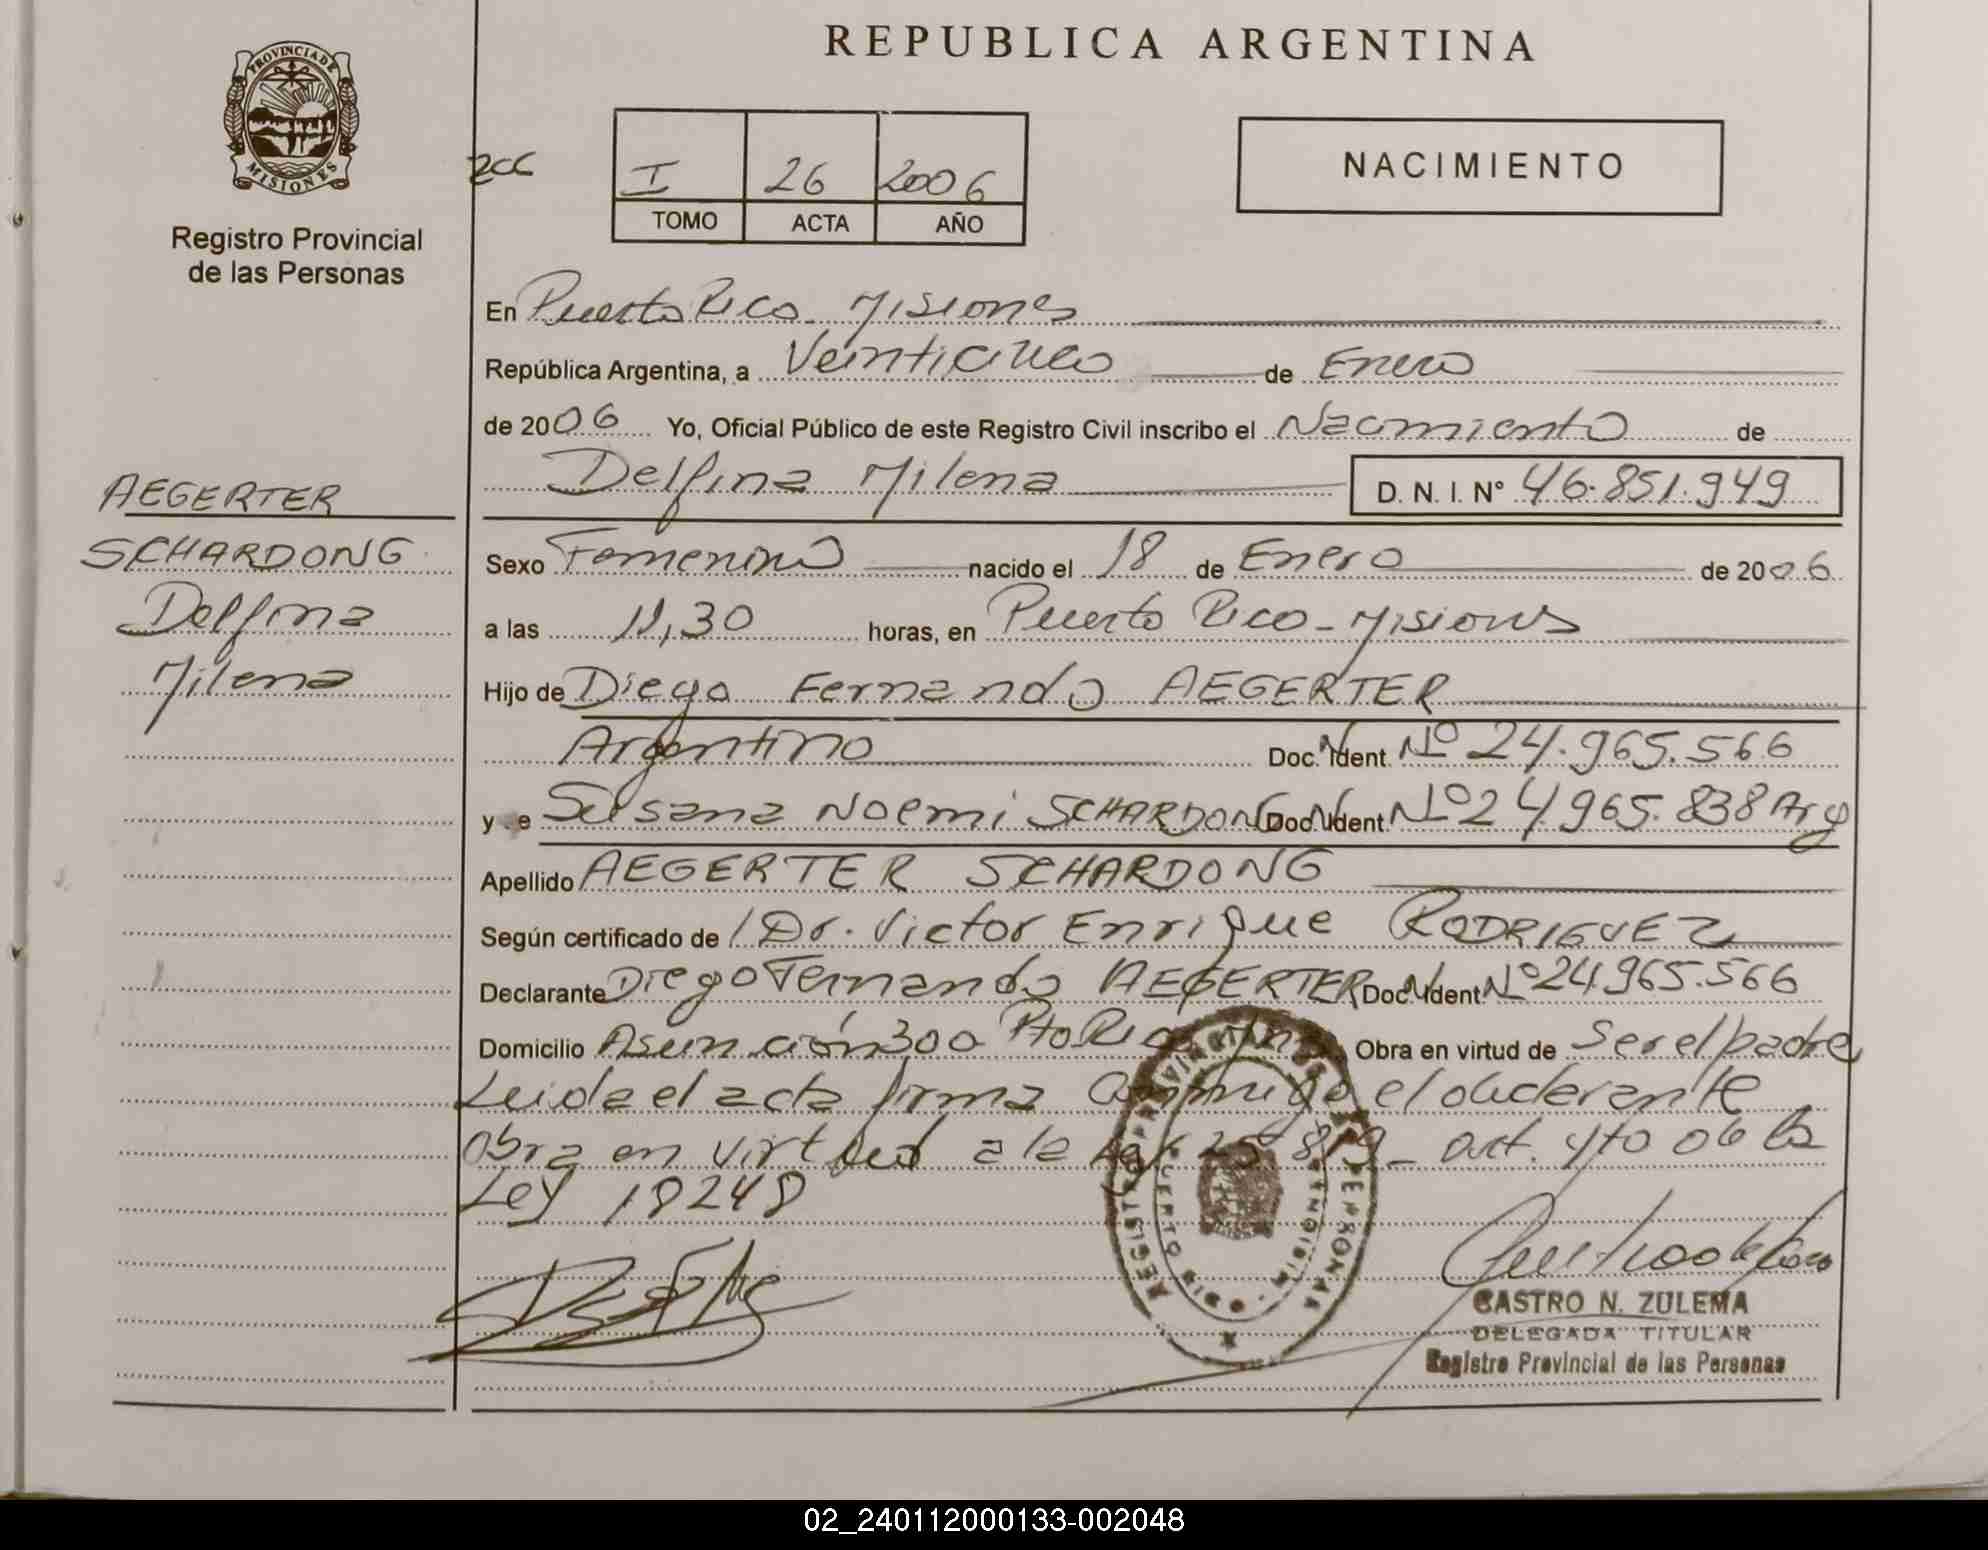 REPUBLICA ARGENTINA
PROVINCIA DE
MISIONES
Registro Provincial
de las Personas
206
I 26 2006
TOMO ACTA AÑO
NACIMIENTO
En Puerto Rico - Misiones
República Argentina, a Veinticinco de Enero
de 2006 Yo, Oficial Público de este Registro Civil inscribo el Nacimiento de
Delfina Milena D. N. I. N° 46.851.949
AEGERTER
SCHARDONG
Delfina
Milena
Sexo Femenino nacido el 18 de Enero de 2006
a las 11,30 horas, en Puerto Rico - Misiones
Hijo de Diego Fernando AEGERTER
Argentino Doc. N. Ident. Nº 24.965.566
y e Susana Noemi SCHARDONG Doc. N. Ident. Nº 24.965.838 Arg
Apellido AEGERTER SCHARDONG
Según certificado de Dr. Victor Enrique RODRIGUEZ
Declarante Diego Fernando AEGERTER Doc. N. Ident. Nº 24.965.566
Domicilio Asunción 300 Pto Rico Mnes Obra en virtud de Ser el padre
Leida el acta firma conmigo el declarante
Obra en virtud a la Ley 25.819 - art. 4to de la
Ley 18248
REGISTRO PROVINCIAL DE LAS PERSONAS
PUERTO RICO
MISIONES
CASTRO N. ZULEMA
DELEGADA TITULAR
Registro Provincial de las Personas
02_240112000133-002048